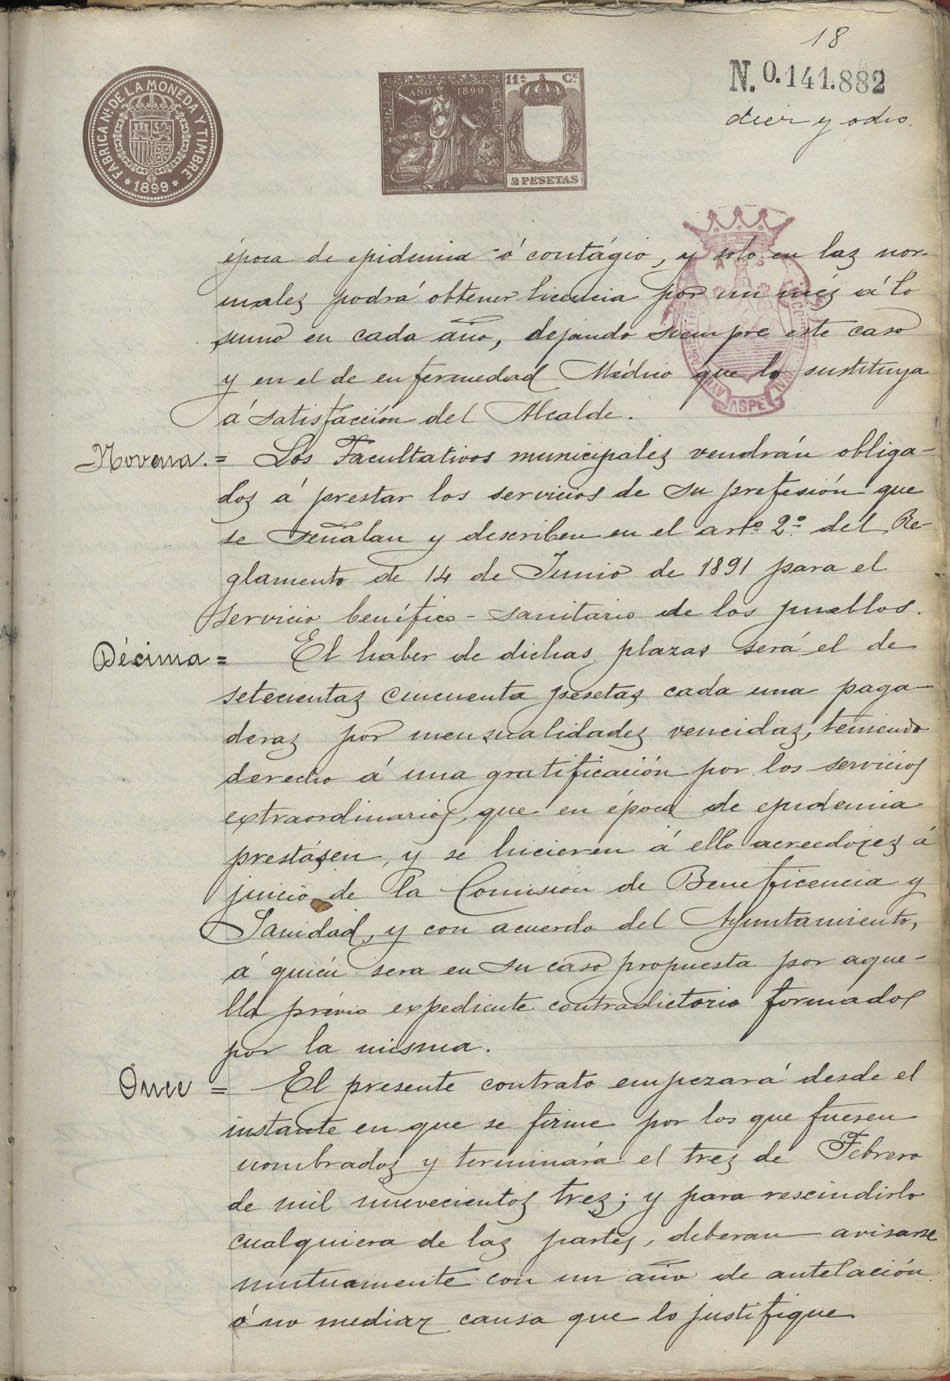 18
FABRICA Nal DE LA MONEDA Y TIMBRE
* 1899 *
AÑO 1899
11ª Cº
2 PESETAS
N. 0.141.882
diez y ocho.
época de epidemia ó contágio, y solo en las nor-
males podrá obtener licencia por un més á lo
sumo en cada año, dejando siempre este caso
y en el de enfermedad Médico que lo sustituya
á satisfacción del Alcalde.
CASPE
Novena.= Los Facultativos municipales vendrán obliga-
dos á prestar los servicios de su profesión que
se señalan y describen en el artº 2º del Re-
glamento de 14 de Junio de 1891 para el
servicio benéfico-sanitario de los pueblos.
Décima = El haber de dichas plazas será el de
setecientas cincuenta pesetas cada una paga-
deras por mensualidades vencidas, teniendo
derecho á una gratificación por los servicios
extraordinarios, que en época de epidemia
prestásen, y se hicieren á ello acreedores á
juicio de la Comisión de Beneficencia y
Sanidad, y con acuerdo del Ayuntamiento,
á quién sera en su caso propuesta por aque-
lla prévio expediente contradictorio formados
por la misma.
Once = El presente contrato empezará desde el
instante en que se firme por los que fuesen
nombrados y terminará el tres de Febrero
de mil nuevecientos tres; y para rescindirlo
cualquiera de las partes, deberan avisarse
mutuamente con un año de antelación
ó no mediar causa que lo justifique